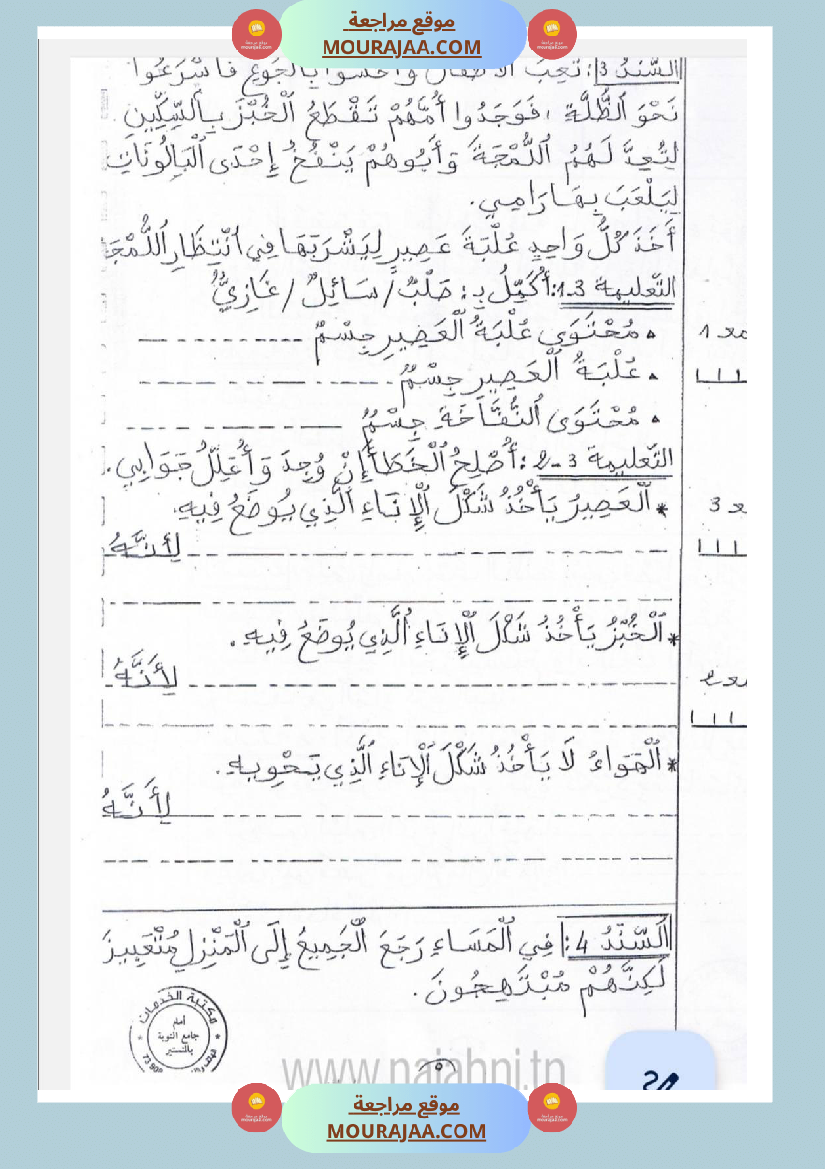 موقع مراجعة
MOURAJAA.COM
السَّنَدُ 3: تَعِبَ الْأَطْفَالُ وَأَحَسُّوا بِالْجُوعِ فَأَسْرَعُوا
نَحْوَ ٱلظُّلَّةِ، فَوَجَدُوا أُمَّهُمْ تَقْطَعُ ٱلْخُبْزَ بِٱلسِّكِّينِ
لِتُعِدَّ لَهُمُ ٱللُّمْجَةَ وَأَبُوهُمْ يَنْفُخُ إِحْدَى ٱلْبَالُونَاتِ
لِيَلْعَبَ بِهَا رَامِي.
أَخَذَ كُلُّ وَاحِدٍ عُلْبَةَ عَصِيرٍ لِيَشْرَبَهَا فِي ٱنْتِظَارِ ٱللُّمْجَة
التّعليمة 3-1: أُكَمِّلُ بِـ: صَلْبٌ / سَائِلٌ / غَازِيٌّ
• مُحْتَوَى عُلْبَةُ ٱلْعَصِيرِ جِسْمٌ
مع 1
• عُلْبَةُ ٱلْعَصِيرِ جِسْمٌ
• مُحْتَوَى ٱلنُّفَّاخَةِ جِسْمٌ
التّعليمة 3-2: أُصْلِحُ ٱلْخَطَأَ إِنْ وُجِدَ وَ أُعَلِّلُ جَوَابِي.
* ٱلْعَصِيرُ يَأْخُذُ شَكْلَ ٱلْإِنَاءِ ٱلَّذِي يُوضَعُ فِيهِ.
مع 3
لِأَنَّهُ
* ٱلْخُبْزُ يَأْخُذُ شَكْلَ ٱلْإِنَاءِ ٱلَّذِي يُوضَعُ فِيهِ.
لِأَنَّهُ
مع 2
* ٱلْهَوَاءُ لَا يَأْخُذُ شَكْلَ ٱلْإِنَاءِ ٱلَّذِي يَحْوِيهِ.
لِأَنَّهُ
ٱلسَّنَدُ 4: فِي ٱلْمَسَاءِ رَجَعَ ٱلْجَمِيعُ إِلَى ٱلْمَنْزِلِ مُتْعَبِينَ
لَكِنَّهُمْ مُبْتَهِجُونَ.
مكتبة الخدمات
أمام
جامع التوبة
بالمنستير
www.najahni.tn
موقع مراجعة
MOURAJAA.COM